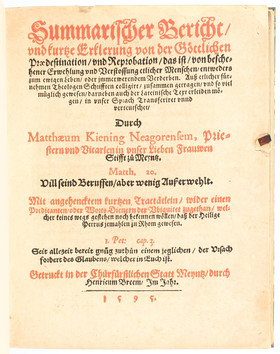 Summarischer Bericht/
vnd kurtze Erklerung von der Göttlichen
Prædestination / vnd Reprobation, das ist / von besche-
hener Erwehlung vnd Verstossung etlicher Menschen / entweders
zum ewigen Leben / oder immerwerendem Verderben. Auß etlicher für-
nehmen Theologen Schrifften colligirt / zusammen getragen / vnd so viel
müglich gewesen / darneben auch der Lateinische Text erleiden mö-
gen / in vnser Sprach Transferiret vnnd
vertreutschet /
Durch
Matthæum Kiening Neagorensem, Prie-
stern vnd Vicarien in vnser Lieben Frauwen
Stifft zu Meyntz.
Matth. 20.
Vill seind Beruffen / aber wenig Außerwehlt.
Mit angehencktem kurtzen Tractätlein / wider einen
Predicanten oder Worts-Dienern der Vbiquitet zugethan / wel-
cher keines wegs gestehen noch bekennen wöllen / daß der Heilige
Petrus jemahlen zu Rhom gewesen.
1. Pet: cap. 3.
Seit allezeit bereit gnůg zuthůn einem jeglichen / der Vrsach
fordert des Glaubens / welcher in Euch ist.
Getruckt in der Churfürstlichen Statt Meyntz / durch
Henricum Breem / Im Jahr.
1595.